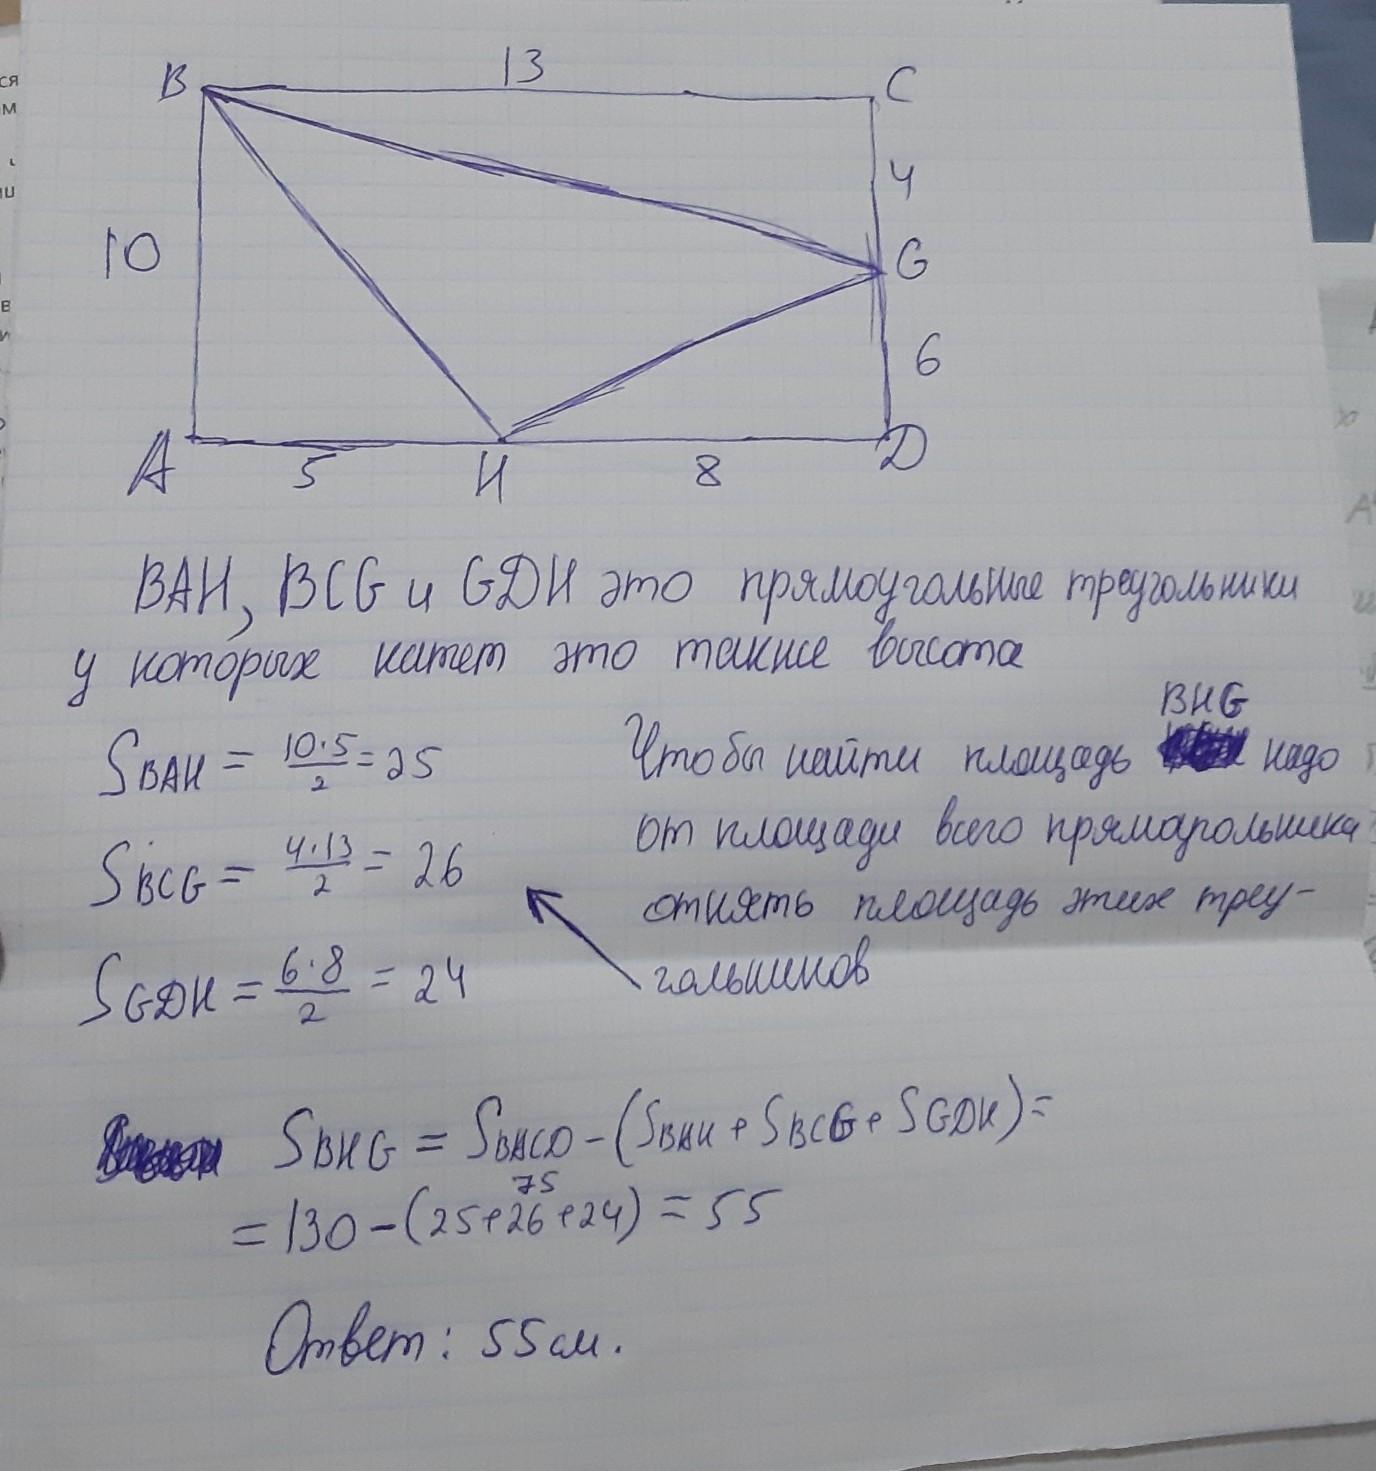 B 13 C
4
10 G
6
A 5 H 8 D
BAH, BCG и GDH это прямоугольные треугольники
у которых катет это также высота
S BAH = 10·5/2 = 25
S BCG = 4·13/2 = 26
S GDH = 6·8/2 = 24
BHG
Чтобы найти площадь надо
от площади всего прямоугольника
отнять площадь этих треу-
гольников
S BHG = S BACD - (S BAH + S BCG + S GDH) =
75
= 130 - (25+26+24) = 55
Ответ: 55 см.
ся
м
в